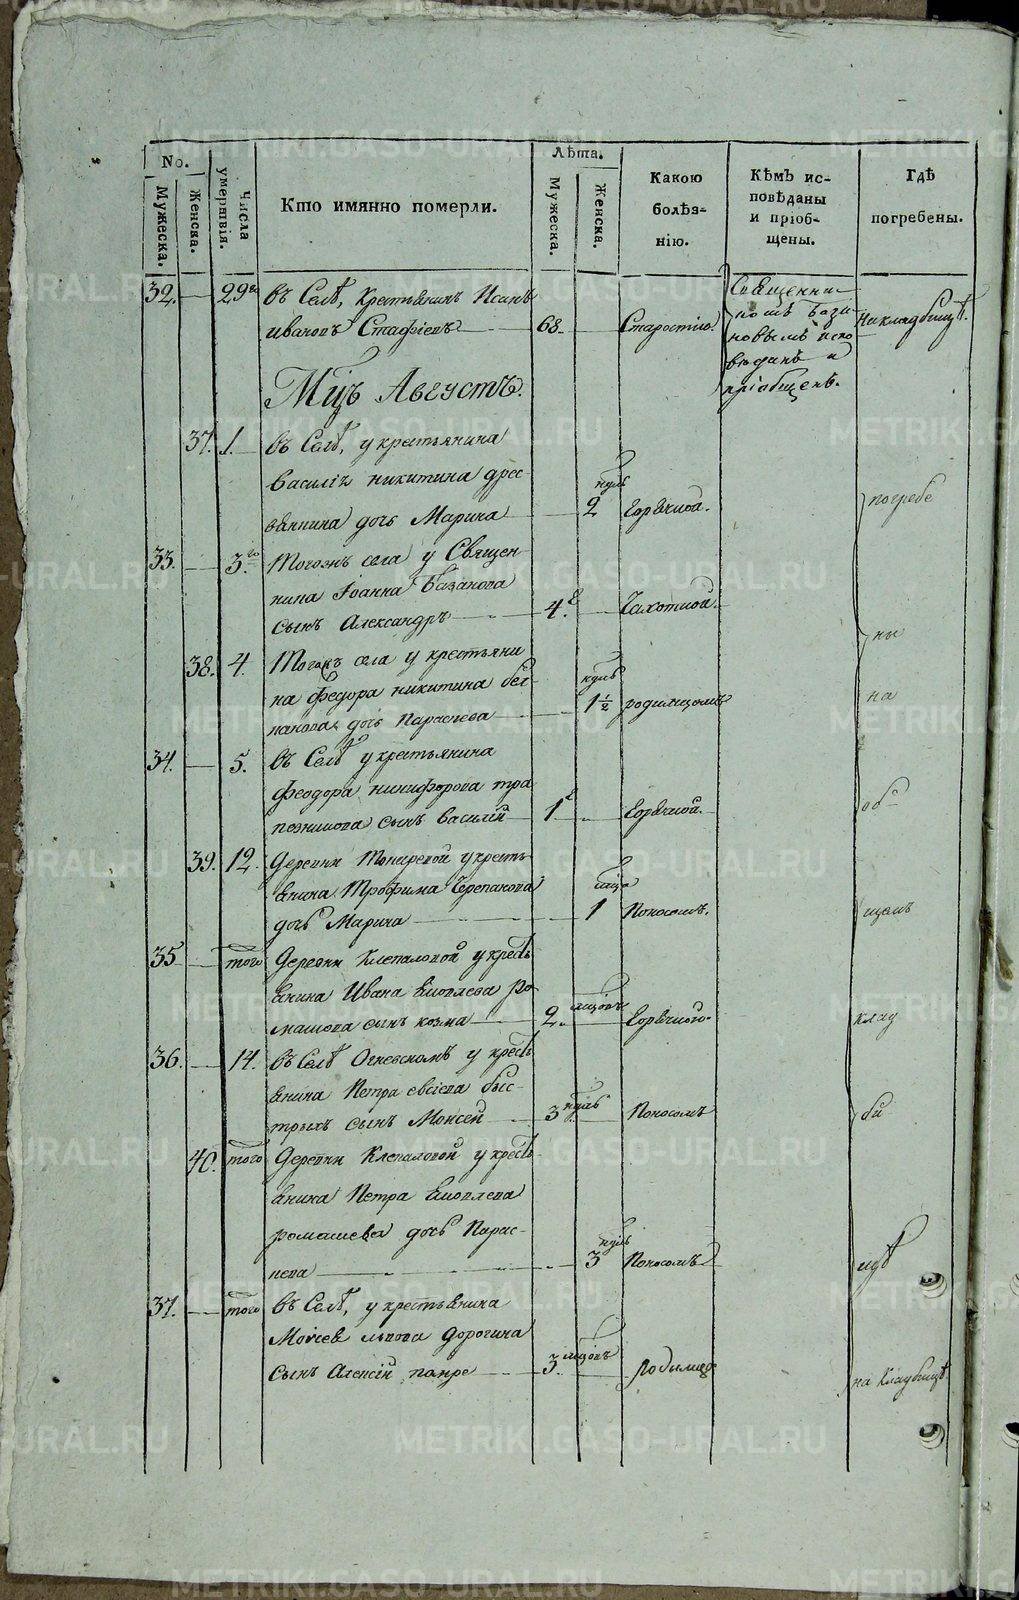 No.
Мужеска.
Женска.
Числа умертвія.
Кто имянно померли.
Лѣта.
Мужеска.
Женска.
Какою болѣз-
нію.
Кѣмъ ис-
повѣданы
и пріоб-
щены.
Гдѣ
погребены.
32. 29го въ Селѣ, Крестьянинъ Исакъ
Ивановъ 68. Старостію.
Священни-
комъ
новымъ испо
вѣданъ и
пріобщенъ.
На кладбищѣ.
Мцъ Августъ.
37. 1. въ Селѣ, у крестьянина
василія никитина дрес-
вянкина дочь Марина 2 нѣдѣль Горячкой.
33. 3го Тогожъ села у Священ-
ника Іоанна Базанова
сынъ Александръ 4. Чахоткой.
38. 4. Тогожъ села у крестьяни
на федора никитина
дочь Параскева 1½ родимцомъ
34. 5. въ Селѣ у крестьянина
Феодора никифорова тра
пезникова сынъ василій 1 Горячкой.
39. 12. Деревни Токаревой у кресть
янина Трофима Черепанова
дочь Марина 1 Поносомъ.
35 того Деревни Клепаловой у кресть
янина Ивана Яковлева ро
машова сынъ козма 2. мѣсяцовъ Горячкою.
36. 14. въ Селѣ Огневскомъ у кресть
янина Петра евсіева быс-
трыхъ сынъ Моисей 3. Поносомъ
40. того Деревни Клепаловой у кресть
янина Петра Яковлева
ромашева дочь Парас-
кева 3 Поносомъ
37. того въ Селѣ, у крестьянина
Моисея львова Дорогина
сынъ Алексій 3. мѣсяцовъ родимце
погребе
ны
на
об
щемъ
клад
би
щѣ
на кладбищѣ.
METRIKI.GASO-URAL.RU